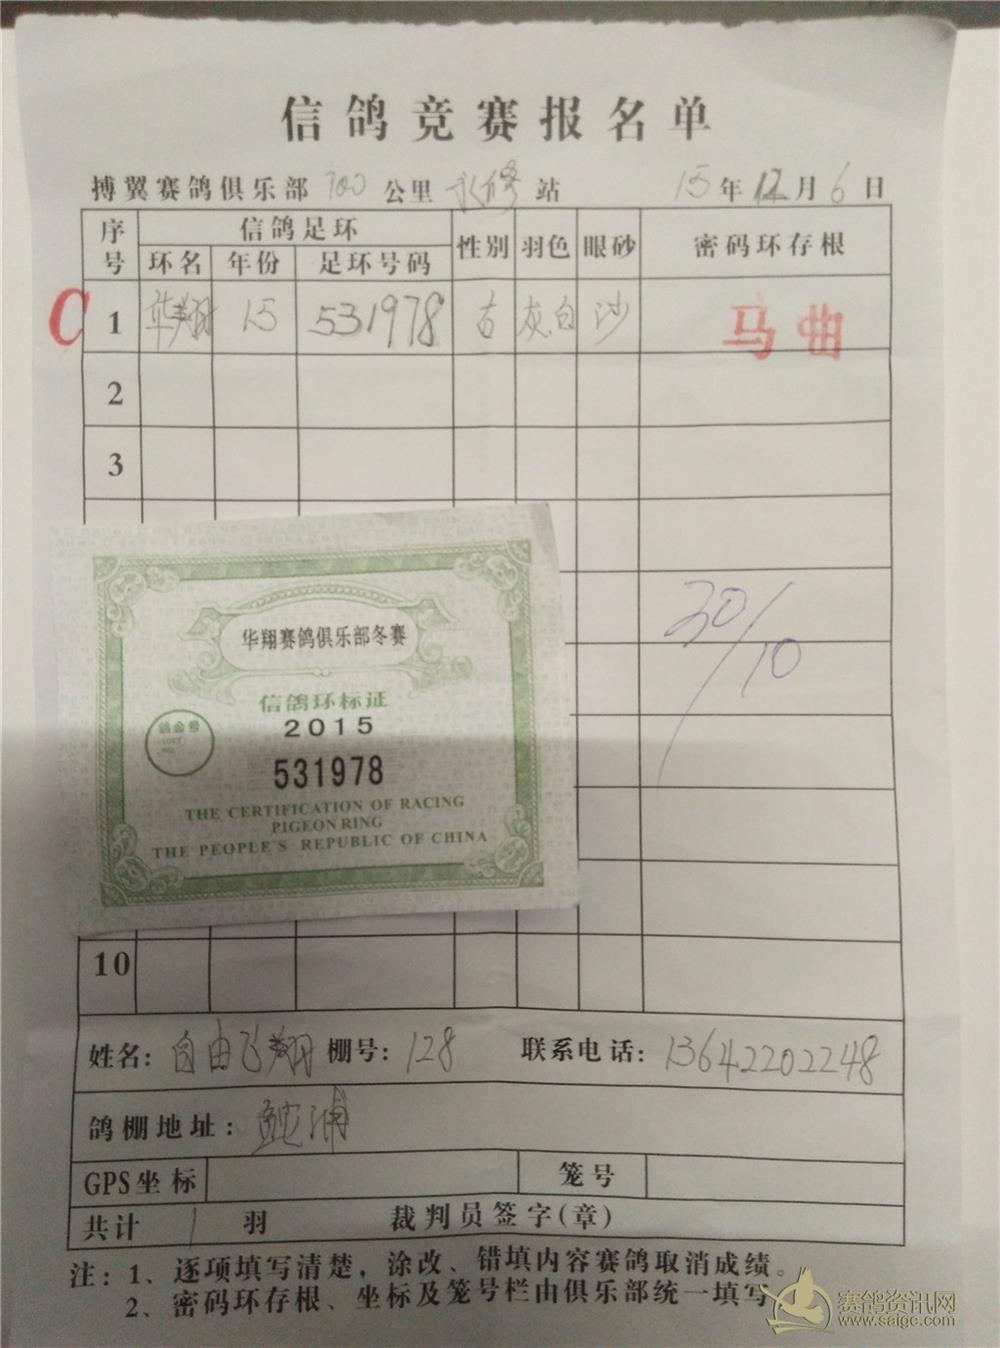 信鸽竞赛报名单
搏翼赛鸽俱乐部 700 公里 永修 站 15 年 12 月 6 日
序号 信鸽足环 性别 羽色 眼砂 密码环存根
环名 年份 足环号码
C 1 华翔 15 531978 灰白 沙 马曲
2
3
30/10
华翔赛鸽俱乐部冬赛
信鸽环标证
2015
531978
THE CERTIFICATION OF RACING
PIGEON RING
THE PEOPLE'S REPUBLIC OF CHINA
10
姓名: 自由飞翔 棚号: 128 联系电话: 13642202248
鸽棚地址:
GPS坐标 笼号
共计 1 羽 裁判员签字(章)
注: 1、逐项填写清楚，涂改、错填内容赛鸽取消成绩。
2、密码环存根、坐标及笼号栏由俱乐部统一填写
赛鸽资讯网
www.saige.com